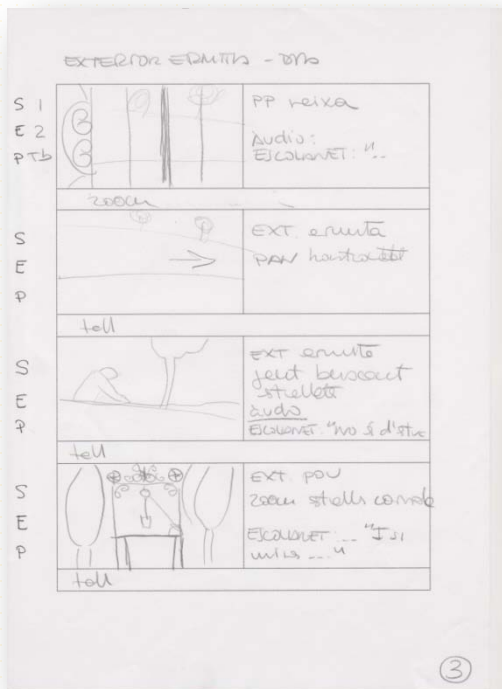 EXTERIOR ERMITA - DIA
S 1
E 2
P Tb
PP reixa
Àudio:
ESCOLANET: "..
zoom
S
E
P
EXT. ermita
PAN horitzontal
tall
S
E
P
EXT ermita
gent buscant
àudio
ESCOLANET: "no
tall
S
E
P
EXT. POU
zoom
ESCOLANET: .. "I si
...."
tall
3